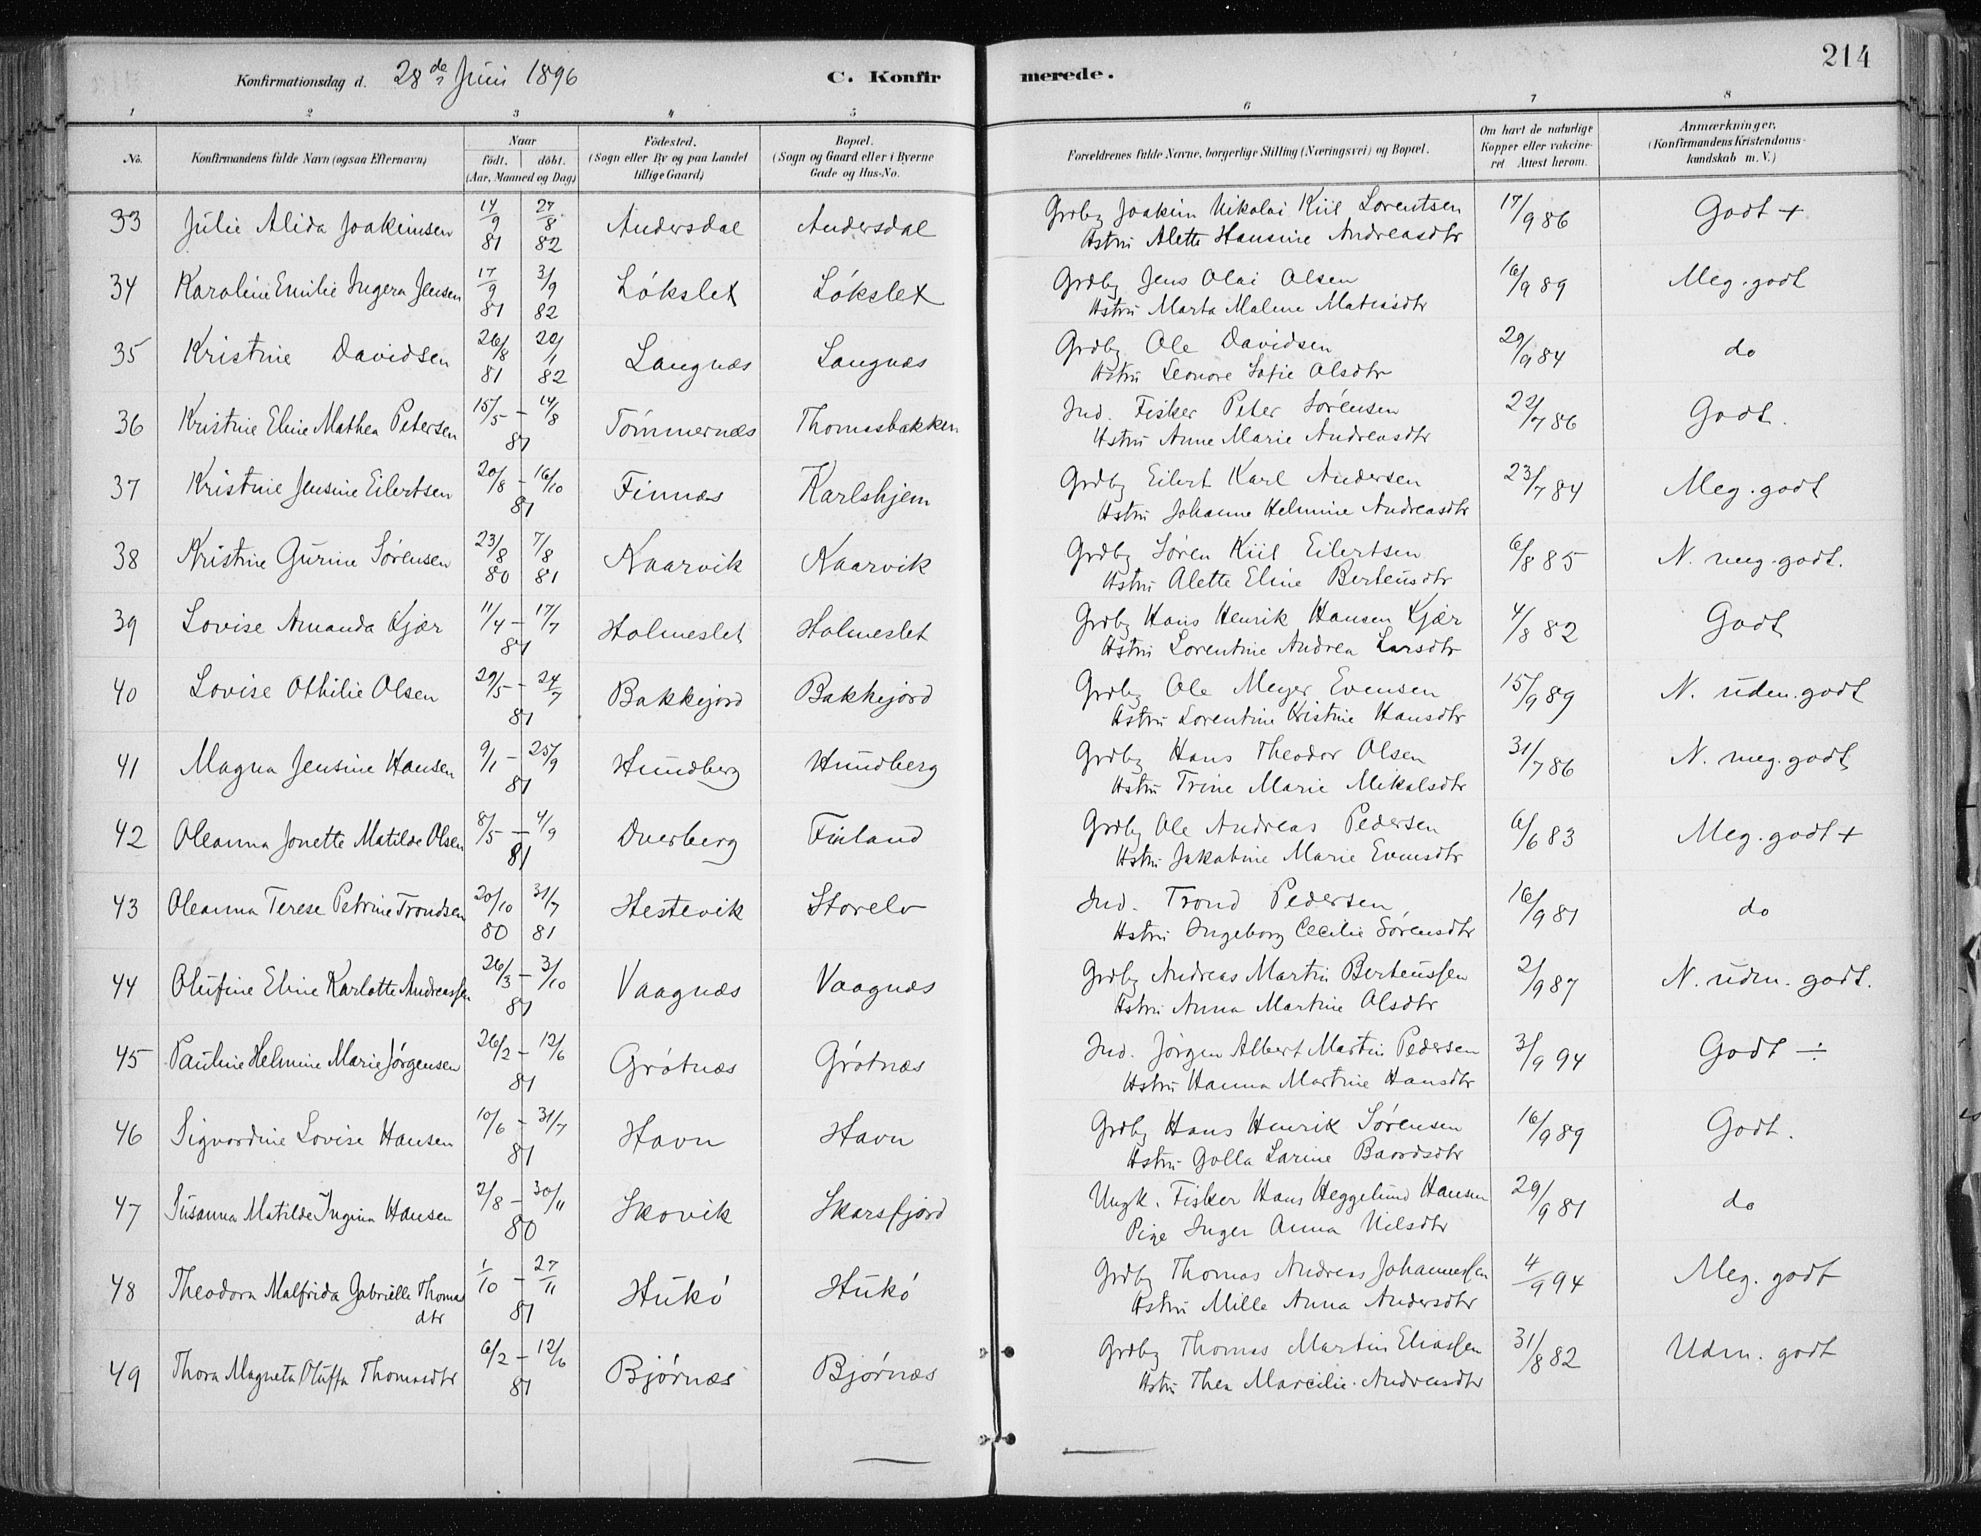 214
Konfirmationsdag d. 28de Juni 1896 C. Konfirmerede.
1 2 3 4 5 6 7 8
No. Konfirmandens fulde Navn (ogsaa Efternavn) Naar födt. döbt. (Aar, Maaned og Dag) Födested. (Sogn eller By og paa Landet tillige Gaard) Bopæl. (Sogn og Gaard eller i Byerne Gade og Hus-No. Forældrenes fulde Navne, borgerlige Stilling (Næringsvei) og Bopæl. Om havt de naturlige Kopper eller vakcineret Attest herom. Anmærkninger. (Konfirmandens Kristendomskundskab m. V.)
33 Julie Alida Joakimsen 14/9 81 27/8 82 Andersdal Andersdal Grdbg Joakim Nikolai Kiil Lorentsen 17/9 86 Godt +
Hstru Alette Hansine Andreasdtr
34 Karoline Emilie Ingera Jensen 17/9 81 3/9 82 Lökslet Lökslet Grdbg Jens Olai Olsen 16/9 89 Meg. godt
Hstru Marta Malene Matisdtr
35 Kristine Davidsen 26/8 81 20/1 82 Langnæs Langnæs Grdbg Ole Davidsen 29/9 84 do
Hstru Leonore Sofie Olsdtr
36 Kristine Eline Mathea Petersen 15/5 - 14/8 81 Tömmernæs Thomasbakken Ind. Fisker Peter Sörensen 22/7 86 Godt.
Hstru Anne Marie Andreasdtr
37 Kristine Jensine Eilertsen 20/8 - 16/10 81 Finnæs Karlshjem Grdbg Eilert Karl Andersen 23/7 84 Meg. godt
Hstru Johanne Helmine Andreasdtr
38 Kristine Gurine Sørensen 23/8 80 7/8 81 Kaarvik Kaarvik Grdbg Søren Kiil Eilertsen 6/8 85 N. meg. godt.
Hstru Alette Eline Berteusdtr
39 Lovise Amanda Kjær 11/4 - 17/7 81 Holmeslet Holmeslet Grdbg Hans Henrik Hansen Kjær 4/8 82 Godt
Hstru Lorentine Andrea Larsdtr
40 Lovise Othilie Olsen 29/5 - 24/7 81 Bakkejord Bakkejord Grdbg Ole Meyer Evensen 15/9 89 N. udm. godt
Hstru Lorentine Kristine Hansdtr
41 Magna Jensine Hansen 9/1 - 25/9 81 Hundberg Hundberg Grdbg Hans Theodor Olsen 31/7 86 N. meg. godt
Hstru Trine Marie Mikalsdtr
42 Oleanna Jonette Matilde Olsen 8/5 - 4/9 81 Dverberg Finland Grdbg Ole Andreas Pedersen 6/6 83 Meg. godt +
Hstru Jakobine Marie Evensdtr
43 Oleanna Terese Petrine Trondsen 20/10 80 31/7 81 Hestevik Storelv Ind. Trond Pedersen 16/9 81 do
Hstru Ingeborg Cecilie Sørensdtr
44 Olufine Eline Karlotte Andreassen 26/3 - 3/10 81 Vaagnæs Vaagnæs Grdbg Andreas Martin Berteussen 2/9 87 N. udm. godt.
Hstru Anna Martine Olsdtr
45 Pauline Helmine Marie Jörgensen 26/2 - 12/6 81 Grötnæs Grötnæs Ind. Jörgen Albert Martin Pedersen 3/9 94 Godt ÷
Hstru Hanna Martine Hansdtr
46 Sigvardine Lovise Hansen 10/6 - 31/7 81 Havn Havn Grdbg Hans Henrik Sørensen 16/9 89 Godt.
Hstru Golla Larine Baardsdtr
47 Susanna Matilde Ingina Hansen 2/8 - 30/11 80 Skovik Skarsfjord Ungk. Fisker Hans Heggelund Hansen 29/9 81 do
Pige Inger Anna Nilsdtr
48 Theodora Malfrida Gabrielle Thomasdtr 1/10 - 27/11 81 Hukö Hukö Grdbg Thomas Andreas Johannessen 4/9 94 Meg. godt
Hstru Mille Anna Andersdtr
49 Thora Magneta Oluffa Thomasdtr 6/2 - 12/6 81 Bjørnæs Bjørnæs Grdbg Thomas Martin Eliassen 31/8 82 Udm. godt
Hstru Thea Marcilie Andreasdtr